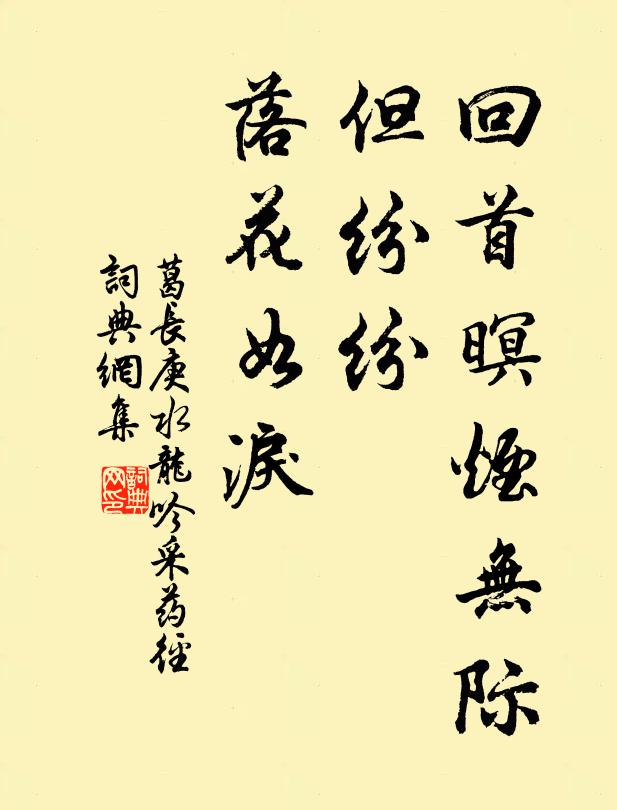 回首暝煙無际
但紛紛
落花如淚
葛長庚水龍吟采药徑
詞典網集
詞典网印